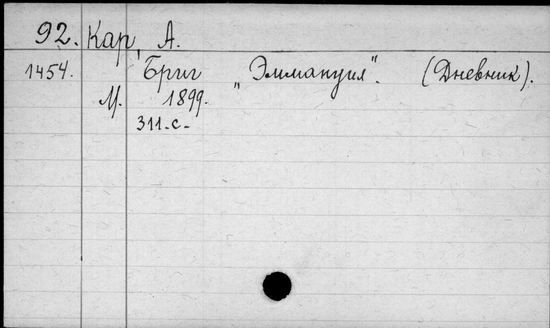 92. Кар, А.
1454. Бриг „Эммануил". (Дневник).
М. 1899.
311.с-